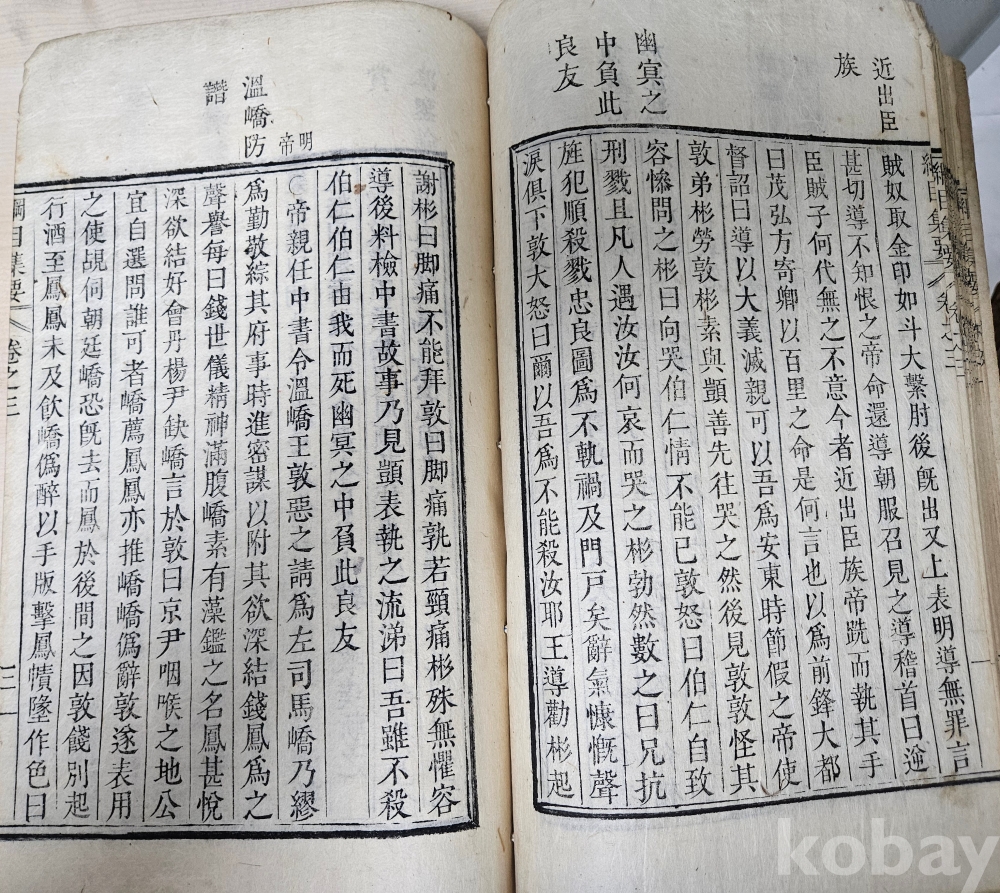 近出臣
族
幽冥之
中負此
良友
綱目集要 卷之三
賊奴取金印如斗大繫肘後旣出又上表明導無罪言
甚切導不知恨之帝命還導朝服召見之導稽首曰逆
臣賊子何代無之不意今者近出臣族帝跣而執其手
曰茂弘方寄卿以百里之命是何言也以爲前鋒大都
督詔曰導以大義滅親可以吾爲安東時節假之帝使
敦弟彬勞敦彬素與顗善先往哭之然後見敦敦怪其
容慘問之彬曰向哭伯仁情不能已敦怒曰伯仁自致
刑戮且凡人遇汝汝何哀而哭之彬勃然數之曰兄抗
旌犯順殺戮忠良圖爲不軌禍及門戶矣辭氣慷慨聲
淚俱下敦大怒曰爾以吾爲不能殺汝耶王導勸彬起
明
帝
溫嶠防
譖
謝彬曰脚痛不能拜敦曰脚痛孰若頸痛彬殊無懼容
導後料檢中書故事乃見顗表執之流涕曰吾雖不殺
伯仁伯仁由我而死幽冥之中負此良友
○帝親任中書令溫嶠王敦惡之請爲左司馬嶠乃繆
爲勤敬綜其府事時進密謀以附其欲深結錢鳳爲之
聲譽每曰錢世儀精神滿腹嶠素有藻鑑之名鳳甚悅
深欲結好會丹楊尹缺嶠言於敦曰京尹咽喉之地公
宜自選問誰可者嶠薦鳳鳳亦推嶠嶠僞辭敦遂表用
之使覘伺朝廷嶠恐旣去而鳳於後間之因敦餞別起
行酒至鳳鳳未及飮嶠僞醉以手版擊鳳幘墜作色曰
綱目集要 卷之三
kobay